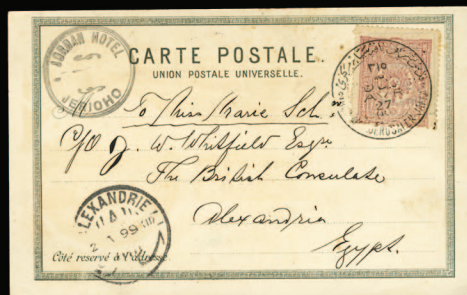 JORDAN HOTEL
JERICHO
CARTE POSTALE.
UNION POSTALE UNIVERSELLE.
JERUSALEM
27
To Miss Marie Sch
C/O J. W. Whitfield Esqre
The British Consulate
Alexandria
Egypt.
ALEXANDRIE
2 I 99
Côté reservé à l'adresse.